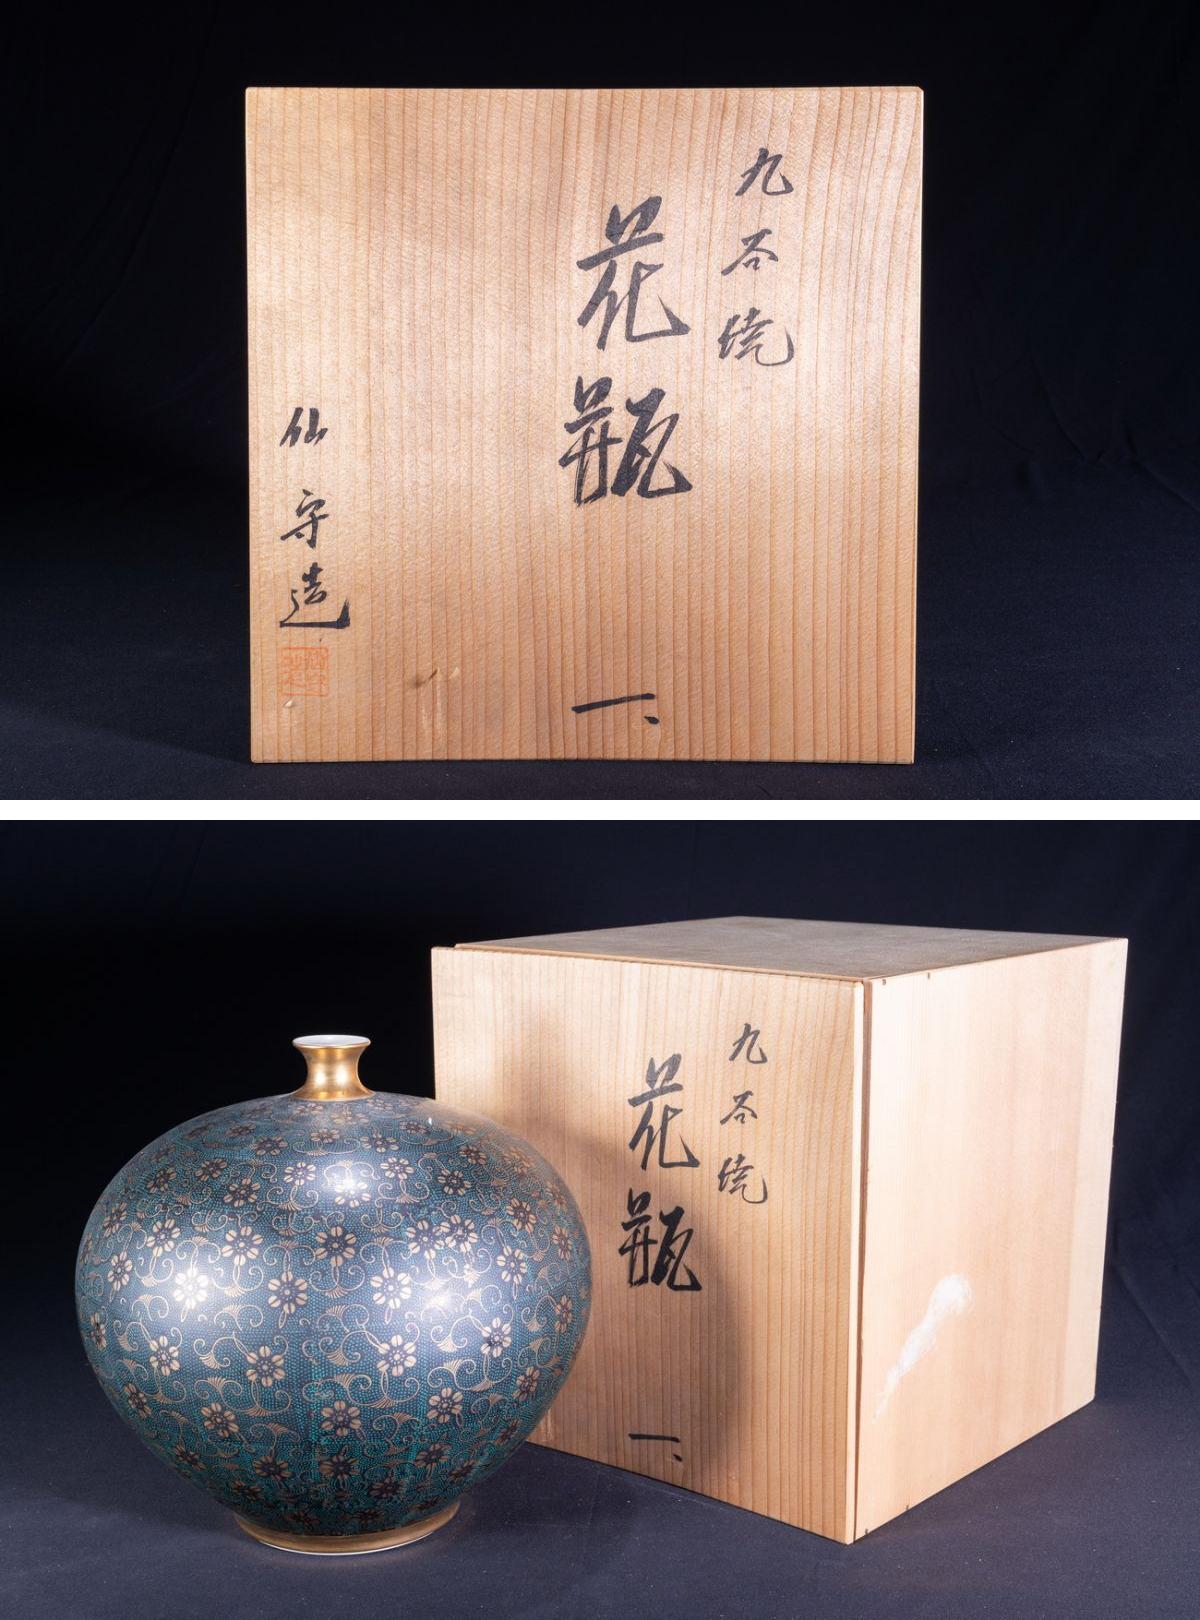 九谷焼
花瓶
一、
仙守造
九谷焼
花瓶
一、